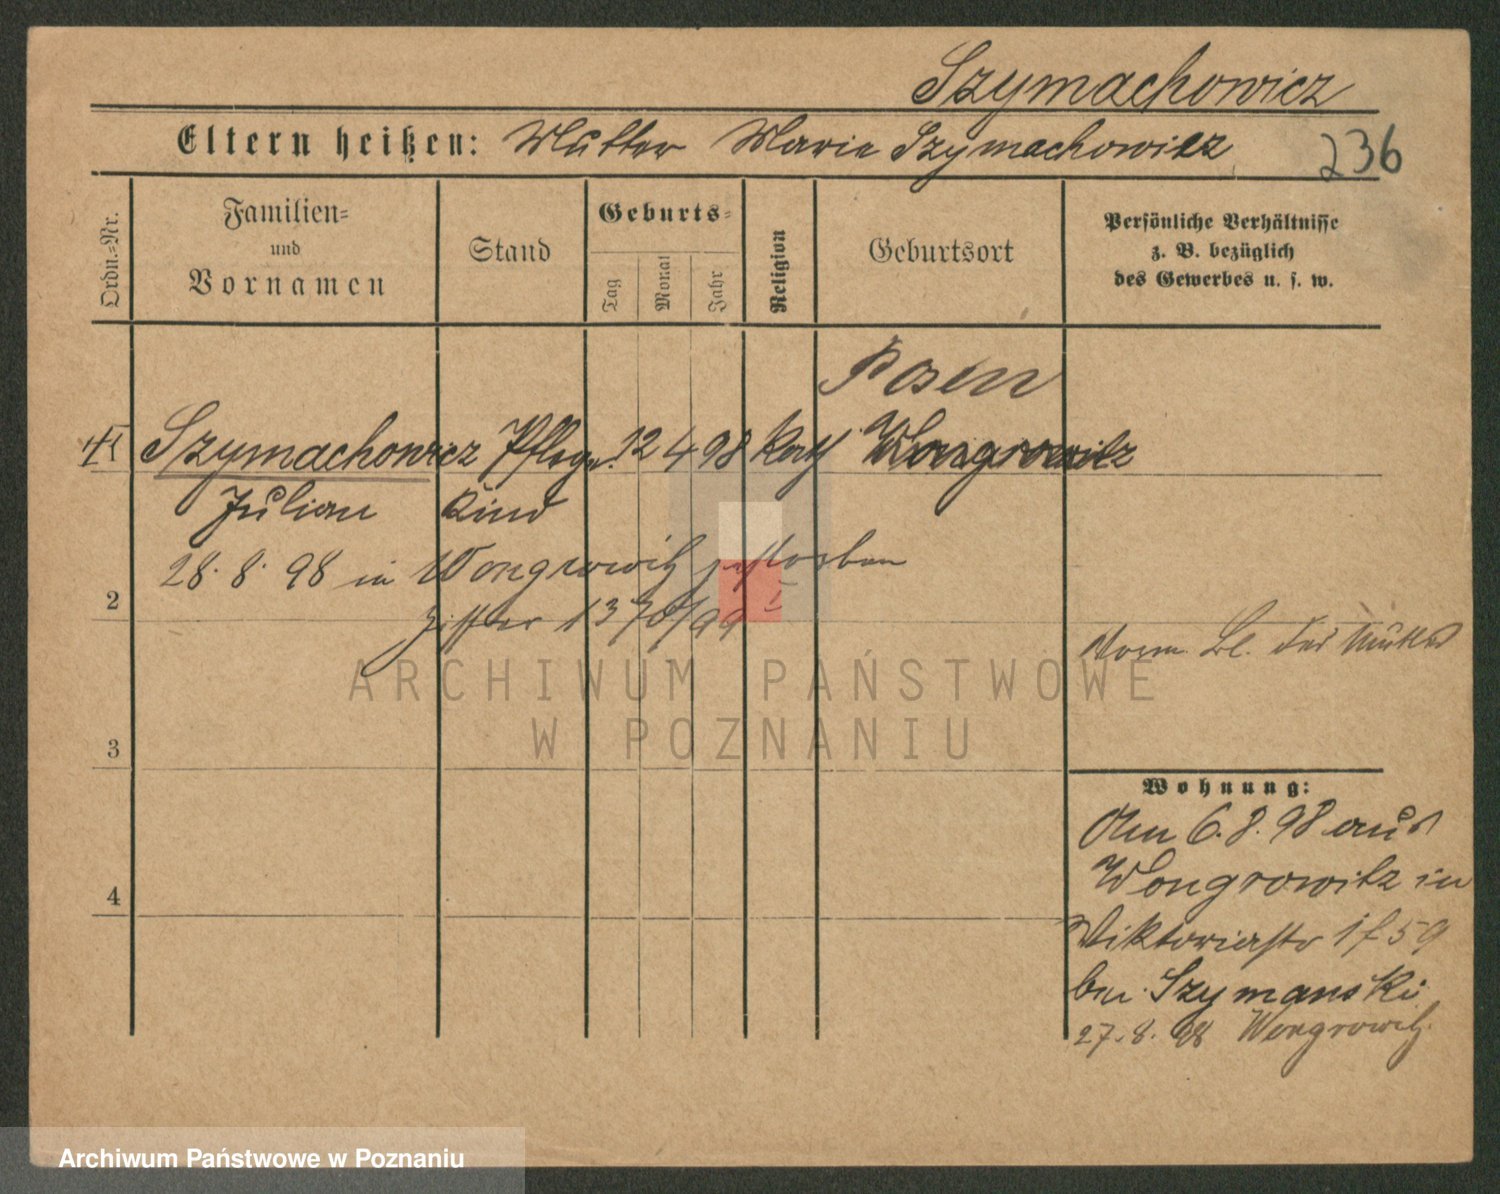 Szymachowicz
Eltern heißen: Mutter Marie Szymachowicz 236
Ordn.=Nr.
Familien=
und
Vornamen
Stand
Geburts=
Tag
Monat
Jahr
Religion
Geburtsort
Persönliche Verhältnisse
z. B. bezüglich
des Gewerbes u. s. w.
Posen
1 Szymachowicz Pflege 12 4 98 Kath Wongrowitz
Julian Kind
28. 8. 98 in Wongrowitz gestorben
2 1370/99
Vorm. Bl. der Mutter
ARCHIWUM PAŃSTWOWE
W POZNANIU
3
Wohnung:
Am 6. 8. 98 aus
Wongrowitz in
4
Viktoriastr 59
bei Szymanski
27. 8. 98 Wongrowitz
Archiwum Państwowe w Poznaniu